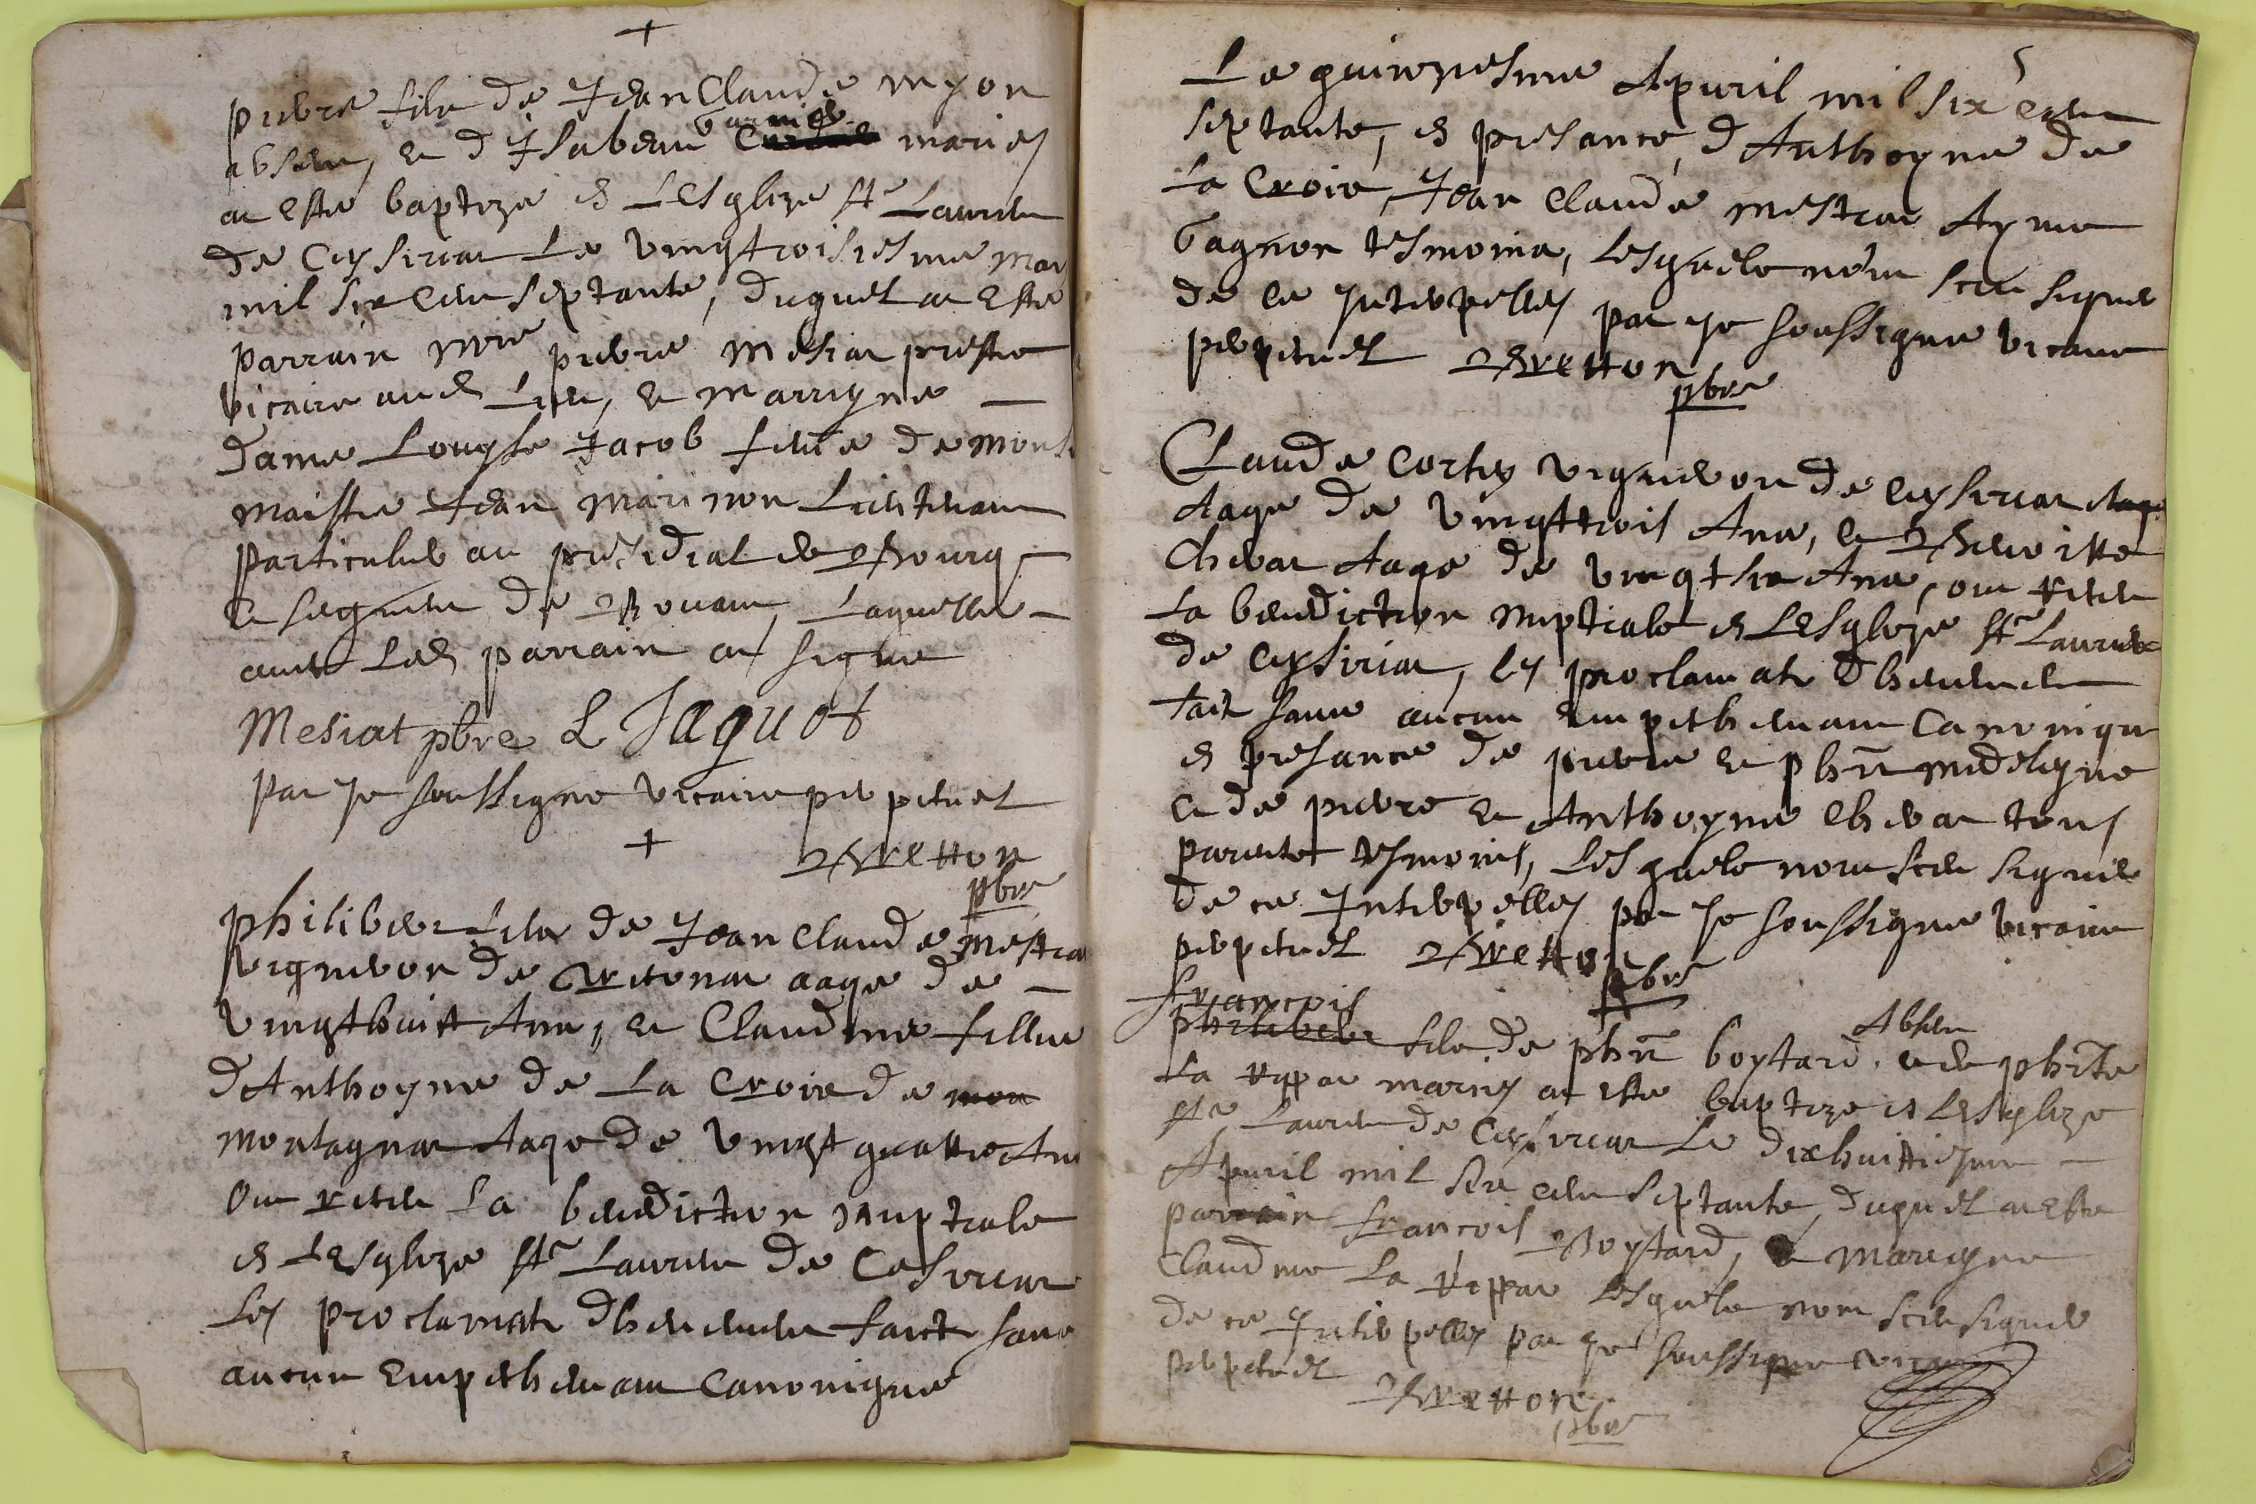 pierre filz de Jean Claude myon
absent, et d'Isabeau Garnier mariez
a este baptize en Lesglize St Laurent
de Ceysiriat Le vingtroisiesme mar
mil six cent septante, duquel a este
parrain mre pierre Mesiat prestre
vicaire aud Lieu, et marrayne —
dame Louyse Jacob femme de mons
maistre Jean Marinon Lieutenant
particulier au presidial de Bourg —
et seigneur de Rouam, Laquelle —
avec Led parrain a signe
Mesiat pbre L Jaquot
par je soussigne vicaire perpetuel
Bretton
pbre
philibert filz de Jean Claude Mestra
vigneron de aage de —
vingthuitt Ans, et Claudine fillie
d'Anthoyne de La Croix de mon
montagnat Aage de vingt quattre Ans
Ont receu La benediction nuptiale
en Lesglize St Laurent de Cesiriat
Les proclamat dheuement faict sans
aucun Empechement canonique
5
Le quinziesme Apuril mil six cent
septante, en presance, d'Anthoyne de
La Croix, Jean Claude Mestrat Ayme
Gagnon tesmoins, Lesquels n'ont sceu signer
de ce Interpelles par je soussigne vicaire
perpetuel Bretton
pbre
Claude Cortey vigneron de Ceysiriat Aage
Aage de vingttrois Ans, et Benoitte
Chevat Aage de vingt six Ans, ont receu
La benediction nuptiale en Lesglize St Laurent
de Ceysiriat, les proclamat dheuement
fait sans aucun Empechement Canonique
en presance de pierre et phrt
et de pierre et Anthoyne Chevat tous
parents tesmoins, Lesquels n'ont sceu signer
de ce Interpelles par je soussigne vicaire
perpetuel Bretton
pbre
Francois
philibert filz de phrt boytard Absent et de phrte
La Rippat mariez a este baptize en Lesglize
St Laurent de Ceysiriat Le dixhuittiesme —
Apuril mil six cent septante, duquel a este
parrain francois Boytard, et marrayne
Claudine La Rippat Lesquels n'ont sceu signer
de ce Interpelles par je soussigne vicaire
perpetuel Bretton
pbre